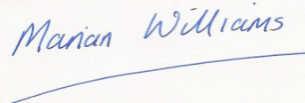 Marian Williams